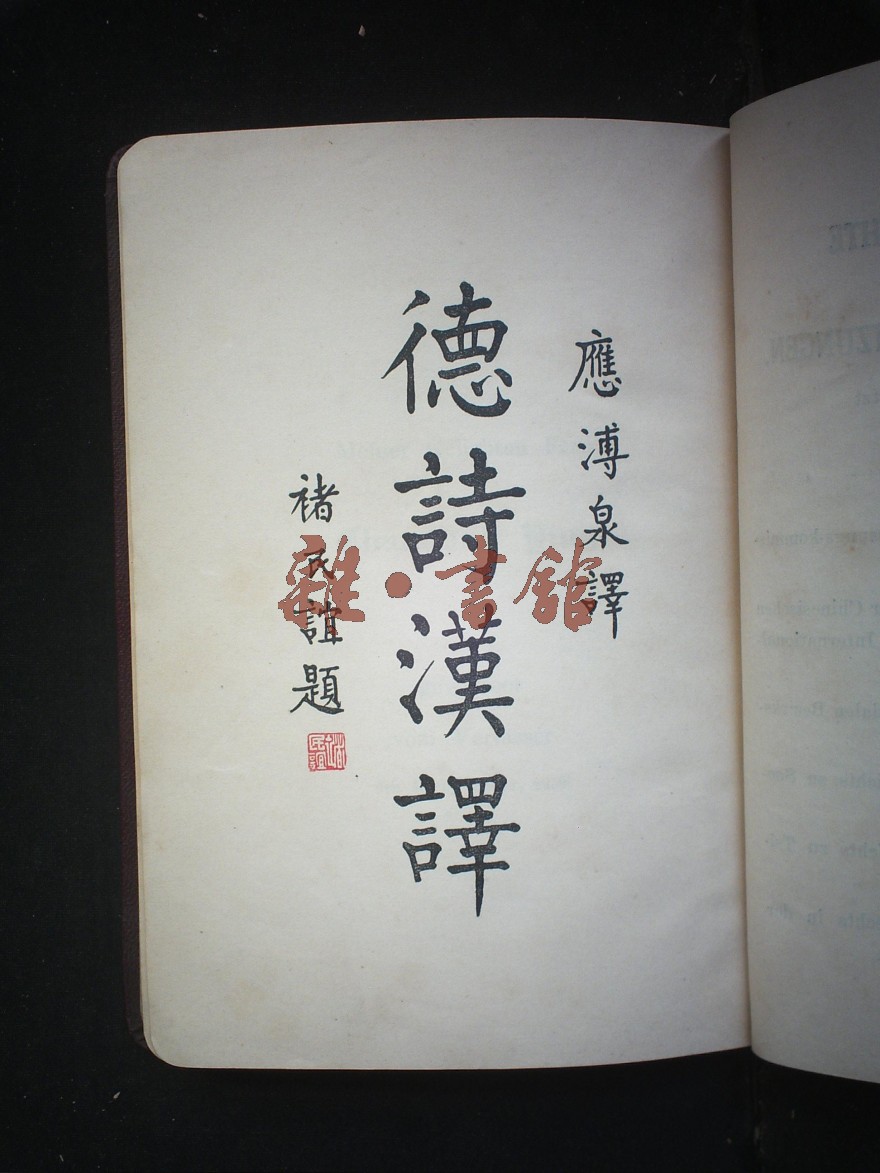 應溥泉譯
德詩漢譯
褚民誼題
雜·書館